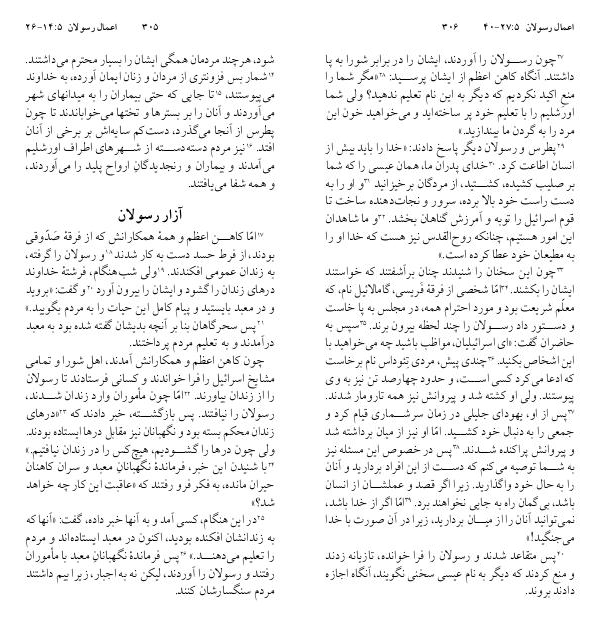 اعمال رسولان ۵:‏۱۴-۲۶ ۳۰۵
شود، هرچند مردمان همگی ایشان را بسیار محترم می‌داشتند.
۱۴شمار بس فزونتری از مردان و زنان ایمان آورده، به خداوند
می‌پیوستند، ۱۵تا جایی که حتی بیماران را به میدانهای شهر
می‌آوردند و آنان را بر بسترها و تختها می‌خواباندند تا چون
پطرس از آنجا می‌گذرد، دست‌کم سایه‌اش بر برخی از آنان
افتد. ۱۶نیز مردم دسته‌دسته از شهرهای اطراف اورشلیم
می‌آمدند و بیماران و رنجدیدگانِ ارواح پلید را می‌آوردند،
و همه شفا می‌یافتند.
آزار رسولان
۱۷امّا کاهن اعظم و همهٔ همکارانش که از فرقهٔ صَدّوقی
بودند، از فرط حسد دست به کار شدند ۱۸و رسولان را گرفته،
به زندان عمومی افکندند. ۱۹ولی شب‌هنگام، فرشتهٔ خداوند
درهای زندان را گشود و ایشان را بیرون آورد ۲۰و گفت: «بروید
و در معبد بایستید و پیام کامل این حیات را به مردم بگویید.»
۲۱پس سحرگاهان بنا بر آنچه بدیشان گفته شده بود به معبد
درآمدند و به تعلیم مردم پرداختند.
چون کاهن اعظم و همکارانش آمدند، اهل شورا و تمامی
مشایخ اسرائیل را فرا خواندند و کسانی فرستادند تا رسولان
را از زندان بیاورند. ۲۲امّا چون مأموران وارد زندان شدند،
رسولان را نیافتند. پس بازگشته، خبر دادند که ۲۳«درهای
زندان محکم بسته بود و نگهبانان نیز مقابل درها ایستاده بودند.
ولی چون درها را گشودیم، هیچ‌کس را در زندان نیافتیم.»
۲۴با شنیدن این خبر، فرماندهٔ نگهبانان معبد و سران کاهنان
حیران مانده، به فکر فرو رفتند که «عاقبت این کار چه خواهد
شد؟»
۲۵در این هنگام، کسی آمد و به آنها خبر داده، گفت: «آنها که
به زندانشان افکنده بودید، اکنون در معبد ایستاده‌اند و مردم
را تعلیم می‌دهند.» ۲۶پس فرماندهٔ نگهبانان معبد با مأموران
رفتند و رسولان را آوردند، لیکن نه به اجبار، زیرا بیم داشتند
مردم سنگسارشان کنند.
اعمال رسولان ۵:‏۲۷-۴۰ ۳۰۶
۲۷چون رسولان را آوردند، ایشان را در برابر شورا به پا
داشتند. آنگاه کاهن اعظم از ایشان پرسید: ۲۸«مگر شما را
منع اکید نکردیم که دیگر به این نام تعلیم ندهید؟ ولی شما
اورشلیم را با تعلیم خود پر ساخته‌اید و می‌خواهید خون این
مرد را به گردن ما بیندازید.»
۲۹پطرس و رسولان دیگر پاسخ دادند: «خدا را باید بیش از
انسان اطاعت کرد. ۳۰خدای پدران ما، همان عیسی را که شما
بر صلیب کشیده، کشتید، از مردگان برخیزانید ۳۱و او را به
دست راست خود بالا برده، سرور و نجات‌دهنده ساخت تا
قوم اسرائیل را توبه و آمرزش گناهان بخشد. ۳۲و ما شاهدان
این امور هستیم، چنانکه روح‌القدس نیز هست که خدا او را
به مطیعان خود عطا کرده است.»
۳۳چون این سخنان را شنیدند چنان برآشفتند که خواستند
ایشان را بکشند. ۳۴امّا شخصی از فرقهٔ فَریسی، گامالائیل نام، که
معلّم شریعت بود و مورد احترام همه، در مجلس به پا خاست
و دستور داد رسولان را چند لحظه بیرون برند. ۳۵سپس به
حاضران گفت: «ای اسرائیلیان، مواظب باشید چه می‌خواهید با
این اشخاص بکنید. ۳۶چندی پیش، مردی تِئوداس نام برخاست
که ادعا می‌کرد کسی است، و حدود چهارصد تن نیز به وی
پیوستند. ولی او کشته شد و پیروانش نیز همه تارومار شدند.
۳۷پس از او، یهودای جلیلی در زمان سرشماری قیام کرد و
جمعی را به دنبال خود کشید. امّا او نیز از میان برداشته شد
و پیروانش پراکنده شدند. ۳۸پس در خصوص این مسئله نیز
به شما توصیه می‌کنم که دست از این افراد بردارید و آنان
را به حال خود واگذارید. زیرا اگر قصد و عملشان از انسان
باشد، بی‌گمان راه به جایی نخواهند برد. ۳۹امّا اگر از خدا باشد،
نمی‌توانید آنان را از میان بردارید، زیرا در آن صورت با خدا
می‌جنگید!»
۴۰پس متقاعد شدند و رسولان را فرا خوانده، تازیانه زدند
و منع کردند که دیگر به نام عیسی سخنی نگویند، آنگاه اجازه
دادند بروند.